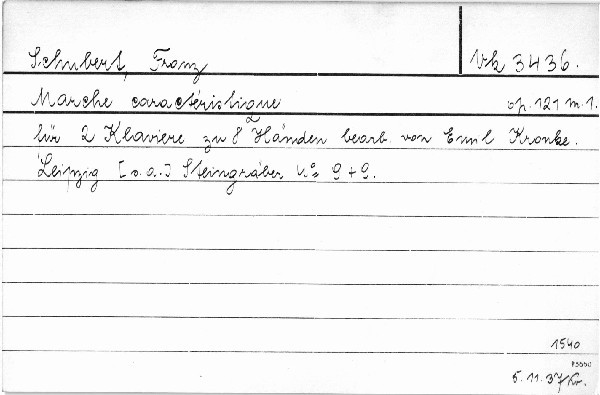 Schubert, Franz Vk 3436.
Marche caractéristique op. 121 n. 1.
für 2 Klaviere zu 8 Händen bearb. von Emil Kronke.
Leipzig [o. a.] Steingräber No 9+9.
1540
5. 11. 37/Kr.